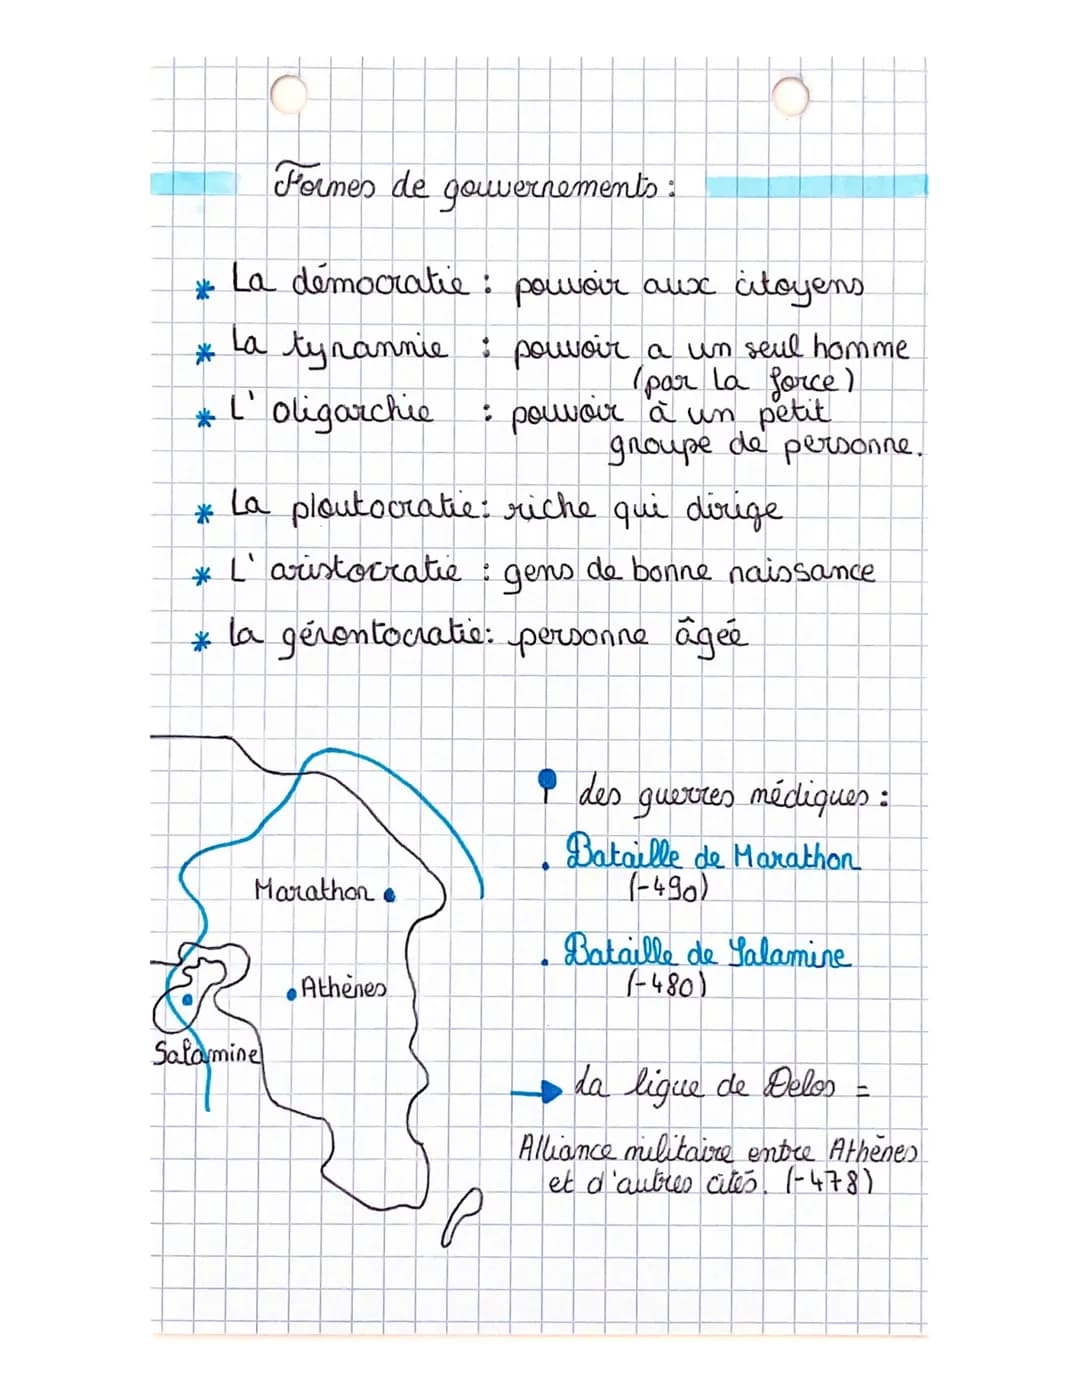 Formes de gouvernements :
* La démocratie : pouvoir aux citoyens
* La tyrannie : pouvoir a un seul homme
(par la force)
* L'oligarchie : pouvoir à un petit
groupe de personne.
* La ploutocratie : riche qui dirige
* L'aristocratie : gens de bonne naissance
* la gérontocratie : personne âgée
des guerres médiques :
. Bataille de Marathon
(-490)
. Bataille de Salamine
(-480)
Marathon
Athènes
Salamine
→ La ligue de Delos =
Alliance militaire entre Athènes
et d'autres cités. (-478)